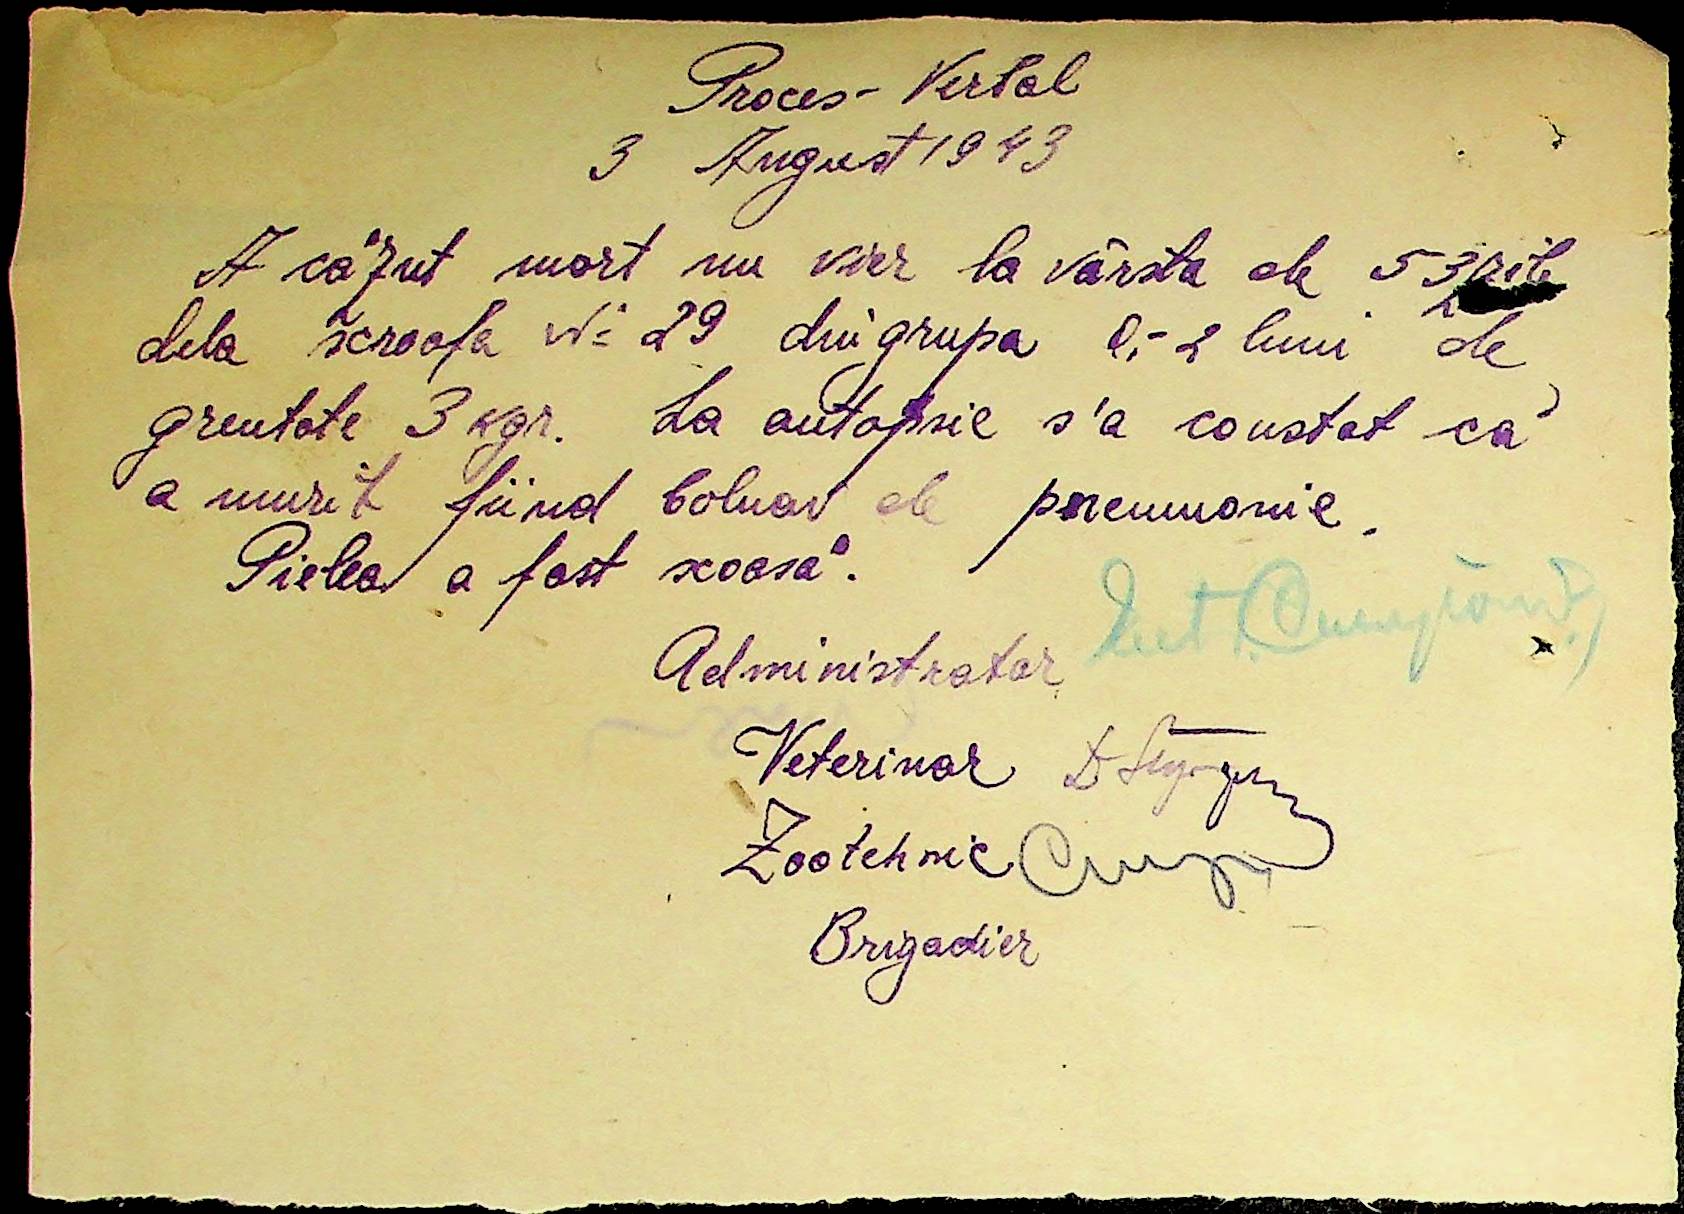 Proces-Verbal
3 August 1943
A căzut mort un vier la vârsta de 53 zile
dela scroafa No 29 din grupa 0,-2 luni de
greutate 3 kgr. La autopsie s'a constat că
a murit fiind bolnav de pneumonie.
Pielea a fost scoasă.
Administrator
Veterinar
Zootehnic
Brigadier